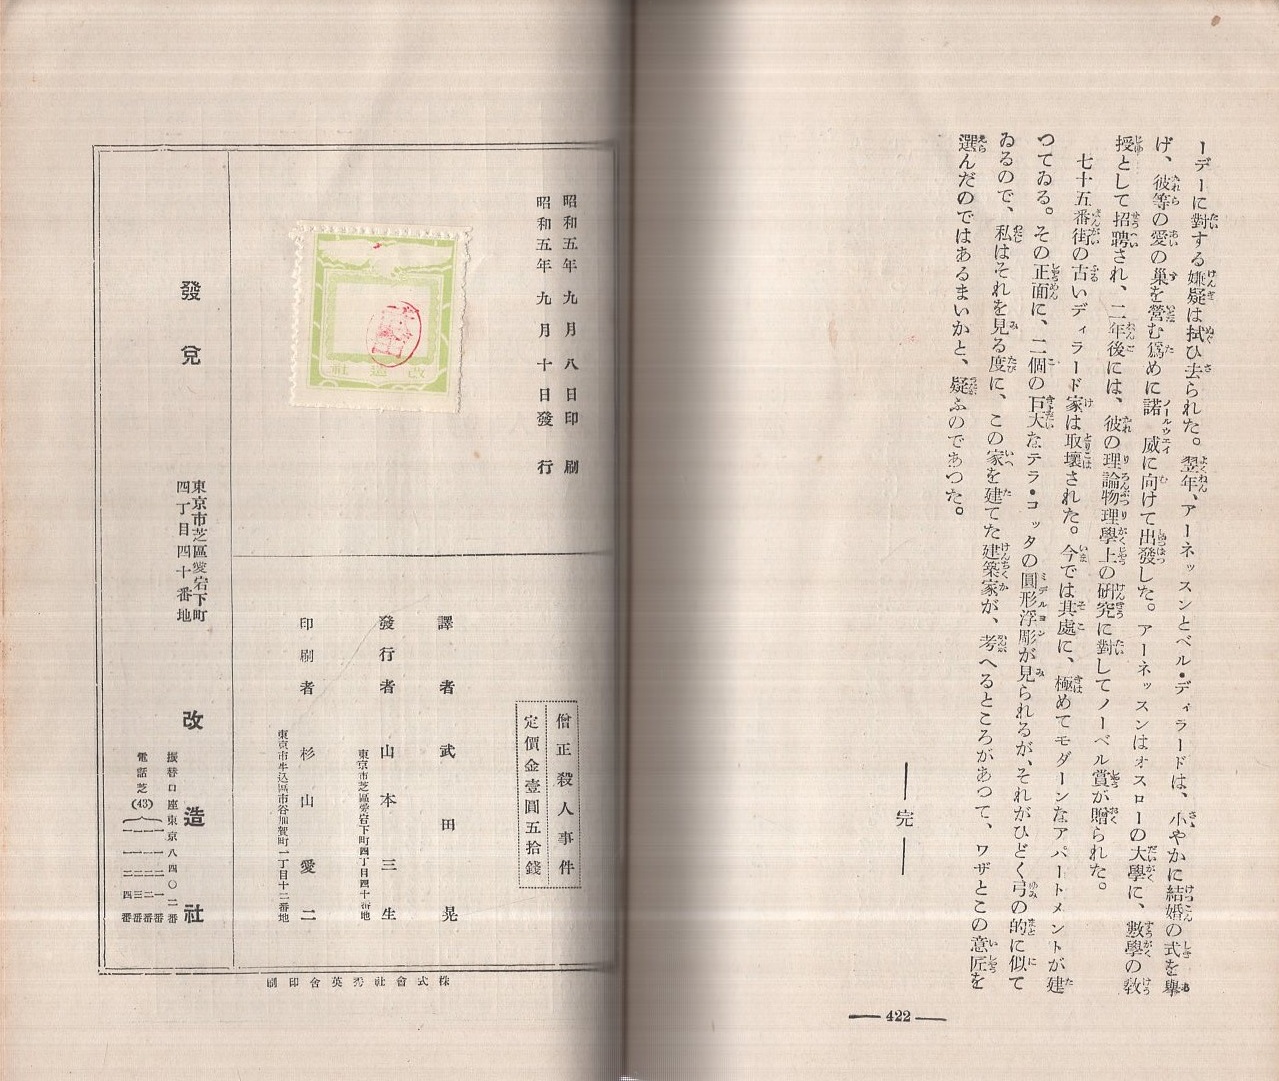 ーデーに對する嫌疑は拭ひ去られた。翌年、アーネッスンとベル・ディラードは、小やかに結婚の式を擧
げ、彼等の愛の巢を營む爲めに諾威に向けて出發した。アーネッスンはオスローの大學に、數學の敎
授として招聘され、二年後には、彼の理論物理學上の硏究に對してノーベル賞が贈られた。
七十五番街の古いディラード家は取壞された。今では其處に、極めてモダーンなアパートメントが建
つてゐる。その正面に、二個の巨大なテラ・コッタの圓形浮彫が見られるが、それがひどく弓の的に似て
ゐるので、私はそれを見る度に、この家を建てた建築家が、考へるところがあつて、ワザとこの意匠を
選んだのではあるまいかと、疑ふのであつた。
——完——
——422——
昭和五年九月八日印刷
昭和五年九月十日發行
改造社
僧正殺人事件
定價金壹圓五拾錢
譯者 武田晃
發行者 山本三生
東京市芝區愛宕下町四丁目四十番地
印刷者 杉山愛二
東京市牛込區市谷加賀町一丁目十二番地
發兌
東京市芝區愛宕下町
四丁目四十番地
改造社
振替口座東京八四〇二番
電話芝(43)
一一二一番
一一二二番
一一二三番
一一二四番
株式會社秀英舍印刷